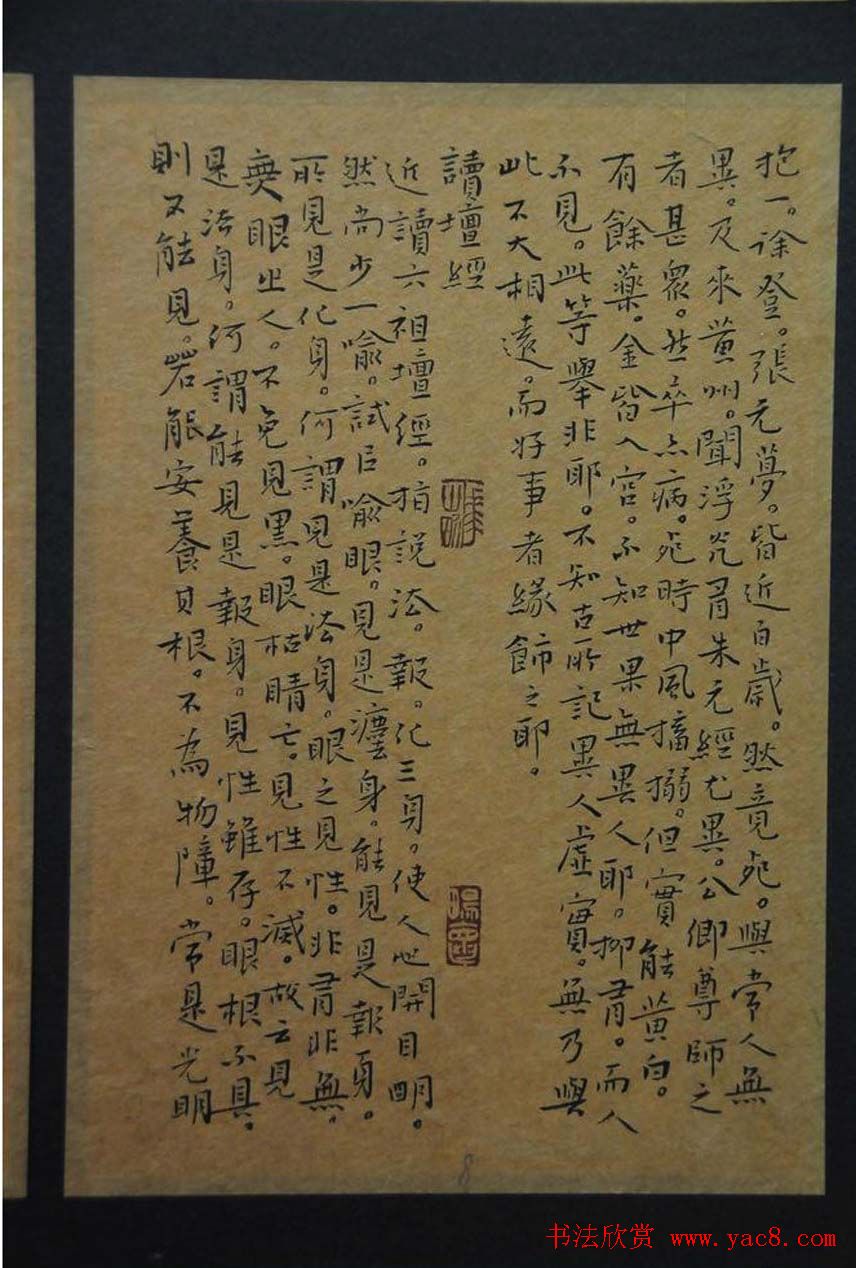 抱一。徐登。張元夢。皆近百歲。然竟死。與常人無
異。及來黃州。聞浮光有朱元經尤異。公卿尊師之
者甚眾。然卒亦病。死時中風搐搦。但實能黃白。
有餘藥。金皆入官。不知世果無異人耶。抑有。而人
不見。此等舉非耶。不知古所記異人虛實。無乃與
此不大相遠。而好事者緣飾之耶。
讀壇經
近讀六祖壇經。指說法。報。化三身。使人心開目明。
然尚少一喻。試以喻眼。見是灋身。能見是報身。
所見是化身。何謂見是法身。眼之見性。非有非無。
無眼之人。不免見黑。眼枯睛亡。見性不滅。故云見
是法身。何謂能見是報身。見性雖存。眼根不具。
則不能見。若能安養其根。不為物障。常是光明
8
书法欣赏 www.yac8.com